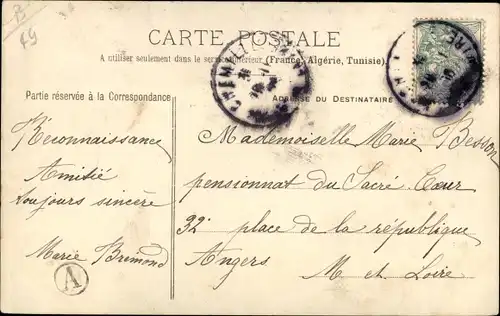 B
49
CARTE POSTALE
A utiliser seulement dans le service intérieur (France, Algérie, Tunisie).
Partie réservée à la Correspondance
ADRESSE DU DESTINATAIRE
Reconnaissance
Amitié
toujours sincère
Marie Brémond
A
Mademoiselle Marie Besson
pensionnat du Sacré Cœur
32 place de la république
Angers
M et Loire